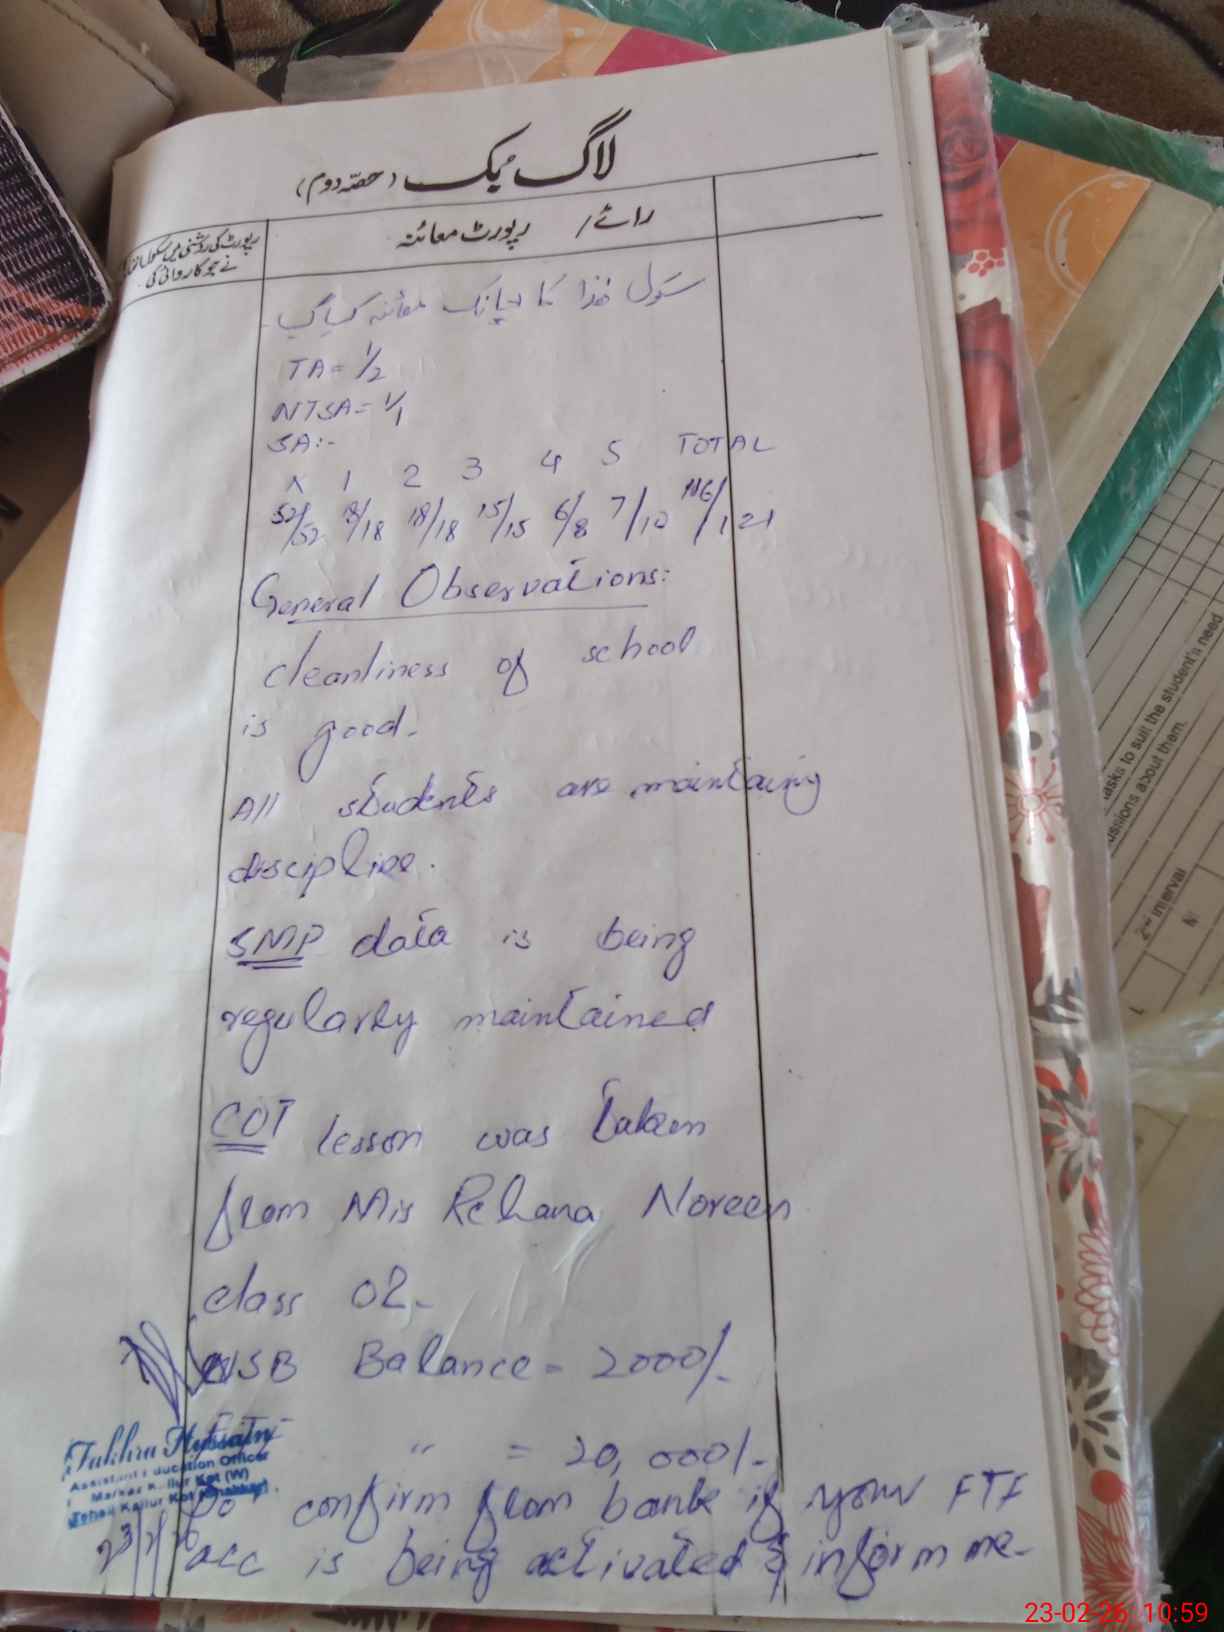 لاگ بک (حصہ دوم)
رائے / رپورٹ معائنہ
رپورٹ کی روشنی میں سکول
نے جو کاروائی کی
سکول ھٰذا کا اچانک معائنہ کیا گیا۔
TA = 1/2
NTSA = 1/1
SA:-
K 1 2 3 4 5 TOTAL
52/52 18/18 18/18 15/15 6/8 7/10 116/121
General Observations:
cleanliness of school
is good.
All students are maintaing
discipline.
SMP data is being
regularly maintained
COT lesson was taken
from Mis Rehana Noreen
class 02.
NSB Balance = 2000/-
" = 20,000/-
Do confirm from bank if your FTF
acc is being activated & inform me.
Fakhru Hussain
Assistant Education Officer
Markaz Kallur Kot (W)
Tehsil Kallur Kot (Bhakkar).
23/2/26
tasks to suit the student's need
ussions about them.
2nd interval
N
1
23-02-26 10:59